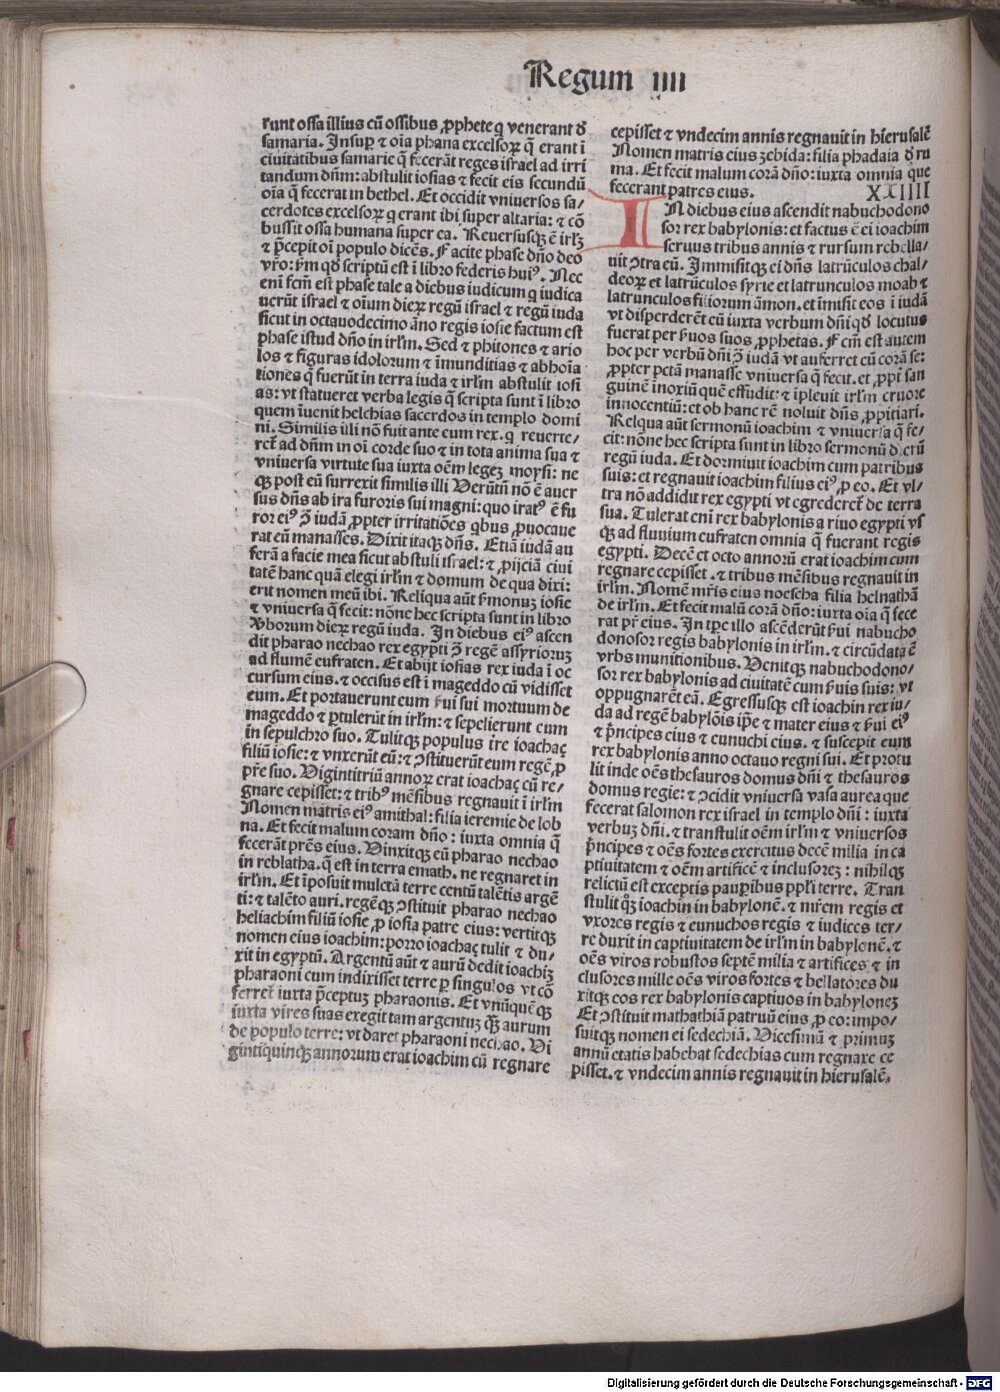 Regum IIII
runt ossa illius cū ossibus ꝓphete q̄ venerant d̄
samaria. Insuꝑ ⁊ oīa phana excelsoꝝ q̄ erant ī
ciuitatibus samarie q̄ fecerāt reges israel ad irri
tandum dn̄m: abstulit iosias ⁊ fecit eis secundū
oīa q̄ fecerat in bethel. Et occidit vniuersos sa/
cerdotes excelsoꝝ q̄ erant ibi super altaria: ⁊ cō
bussit ossa humana super ea. Reuersusqꝫ ē irlꝫ
⁊ p̄cepit oī populo dicēs. Facite phase dn̄o deo
vr̄o: ẜm qd̄ scriptū est ī libro federis huiꝰ. Nec
enī fcm̄ est phase tale a diebus iudicum q̄ iudica
uerūt israel ⁊ oīum dieꝝ regū israel ⁊ regū iuda
sicut in octauodecimo āno regis iosie factum est
phase istud dn̄o in irlm̄. Sed ⁊ phitones ⁊ ario
los ⁊ figuras idolorum ⁊ īmunditias ⁊ abhoīa
tiones q̄ fuerūt in terra iuda ⁊ irlm̄ abstulit iosi
as: vt statueret verba legis q̄ scripta sunt ī libro
quem īuenit helchias sacerdos in templo domi
ni. Similis illi nō fuit ante eum rex. q̄ reuerte/
ret̄ ad dn̄m in oī corde suo ⁊ in tota anima sua ⁊
vniuersa virtute sua iuxta oēm legeꝫ moysi: ne
qꝫ post eū surrexit similis illi Verūtn̄ nō ē auer
sus dn̄s ab ira furoris sui magni: quo iratꝰ ē fu
ror eiꝰ ↄ̄ iudā ꝓpter irritatiōes qbus ꝓuocaue
rat eū manasses. Dixit itaqꝫ dn̄s. Etiā iudā au
ferā a facie mea sicut abstuli israel: ⁊ ꝓijciā ciui
tatē hanc quā elegi irlm̄ ⁊ domum de qua dixi:
erit nomen meū ibi. Reliqua aūt ẜmonuꝫ iosie
⁊ vniuersa q̄ fecit: nōne hec scripta sunt in libro
v̄borum dieꝝ regū iuda. In diebus eiꝰ ascen
dit pharao nechao rex egypti ↄ̄ regē assyrioruꝫ
ad flumē eufraten. Et abijt iosias rex iuda ī oc
cursum eius. ⁊ occisus est ī mageddo cū vidisset
eum. Et portauerunt eum ẜui sui mortuum de
mageddo ⁊ ꝑtulerūt in irlm̄: ⁊ sepelierunt eum
in sepulchro suo. Tulitqꝫ populus tr̄e ioachaꝫ
filiū iosie: ⁊ vnxerūt eū: ⁊ ↄstituerūt eum regē ꝓ
pr̄e suo. Vigintitriū annoꝝ erat ioachaꝫ cū re/
gnare cepisset: ⁊ tribꝰ mēsibus regnauit ī irlm̄
Nomen matris eiꝰ amithal: filia ieremie de lob
na. Et fecit malum coram dn̄o: iuxta omnia q̄
fecerāt pr̄es eius. Vinxitqꝫ eū pharao nechao
in reblatha. q̄ est in terra emath. ne regnaret in
irlm̄. Et īposuit mulctā terre centū talētis argē
ti: ⁊ talēto auri. regēqꝫ ↄstituit pharao nechao
heliachim filiū iosie ꝓ iosia patre eius: vertitqꝫ
nomen eius ioachim: porro ioachaꝫ tulit ⁊ du/
xit in egyptū. Argentū aūt ⁊ aurū dedit ioachiꝫ
pharaoni cum indixisset terre ꝑ singulos vt cō
ferret iuxta p̄ceptuꝫ pharaonis. Et vnūquēqꝫ
iuxta vires suas exegit tam argentuꝫ qꝫ aurum
de populo terre: vt daret pharaoni nechao. Vi
gintiquinqꝫ annorum erat ioachim cū regnare
cepisset ⁊ vndecim annis regnauit in hierusalē
Nomen matris eius zebida: filia phadaia d̄ ru
ma. Et fecit malum corā dn̄o: iuxta omnia que
fecerant patres eius. XXIIII
IN diebus eius ascendit nabuchodono
sor rex babylonis: et factus ē ei ioachim
seruus tribus annis ⁊ rursum rebella/
uit ↄtra eū. Immisitqꝫ ei dn̄s latrūculos chal/
deoꝝ et latrūculos syrie et latrunculos moab ⁊
latrunculos filiorum āmon. et īmisit eos ī iudā
vt disperderēt eū iuxta verbum dn̄i qd̄ locutus
fuerat per ẜuos suos ꝓphetas. Fcm̄ est autem
hoc per verbū dn̄i ↄ̄ iudā vt auferret eū corā se:
ꝓpter pctā manasse vniuersa q̄ fecit. et ꝓpt̄ san
guinē inoxiū quē effudit: ⁊ īpleuit irlm̄ cruore
innocentiū: et ob hanc rē noluit dn̄s ꝓpitiari.
Relqua aūt sermonū ioachim ⁊ vniuersa q̄ fe/
cit: nōne hec scripta sunt in libro sermonū dierū
regū iuda. Et dormiuit ioachim cum patribus
suis: et regnauit ioachim filius eiꝰ ꝓ eo. Et vl/
tra nō addidit rex egypti vt egrederet̄ de terra
sua. Tulerat enī rex babylonis a riuo egypti vs
qꝫ ad fluuium eufraten omnia q̄ fuerant regis
egypti. Decē et octo annorū erat ioachim cum
regnare cepisset. ⁊ tribus mēsibus regnauit in
irlm̄. Nomē mr̄is eius noescha filia helnathā
de irlm̄. Et fecit malū corā dn̄o: iuxta oīa q̄ fece
rat pr̄ eius. In tꝑe illo ascēderūt ẜui nabucho
donosor regis babylonis in irlm̄. ⁊ circūdata ē
vrbs munitionibus. Venitqꝫ nabuchodono/
sor rex babylonis ad ciuitatē cum ẜuis suis: vt
oppugnarēt eā. Egressusqꝫ est ioachin rex iu/
da ad regē babylōis ip̄e ⁊ mater eius ⁊ ẜui eiꝰ
⁊ p̄ncipes eius ⁊ eunuchi eius. ⁊ suscepit eum
rex babylonis anno octauo regni sui. Et protu
lit inde oēs thesauros domus dn̄i ⁊ thesauros
domus regie: ⁊ ↄcidit vniuersa vasa aurea que
fecerat salomon rex israel in templo dn̄i: iuxta
verbuꝫ dn̄i. ⁊ transtulit oēm irlm̄ ⁊ vniuersos
p̄ncipes ⁊ oēs fortes exercitus decē milia in ca
ptiuitatem ⁊ oēm artificē ⁊ inclusoreꝫ: nihilqꝫ
relictū est exceptis pauꝑibus ppl̄i terre. Tran
stulit qꝫ ioachin in babylonē. ⁊ mr̄em regis et
vxores regis ⁊ eunuchos regis ⁊ iudices ter/
re duxit in captiuitatem de irlm̄ in babylonē. ⁊
oēs viros robustos septē milia ⁊ artifices ⁊ in
clusores mille oēs viros fortes ⁊ bellatores du
xitqꝫ eos rex babylonis captiuos in babyloneꝫ
Et ↄstituit mathathiā patruū eius ꝓ eo: impo/
suitqꝫ nomen ei sedechiā. Vicesimū ⁊ primuꝫ
annū etatis habebat sedechias cum regnare ce
pisset. ⁊ vndecim annis regnauit in hierusalē.
Digitalisierung gefördert durch die Deutsche Forschungsgemeinschaft - DFG